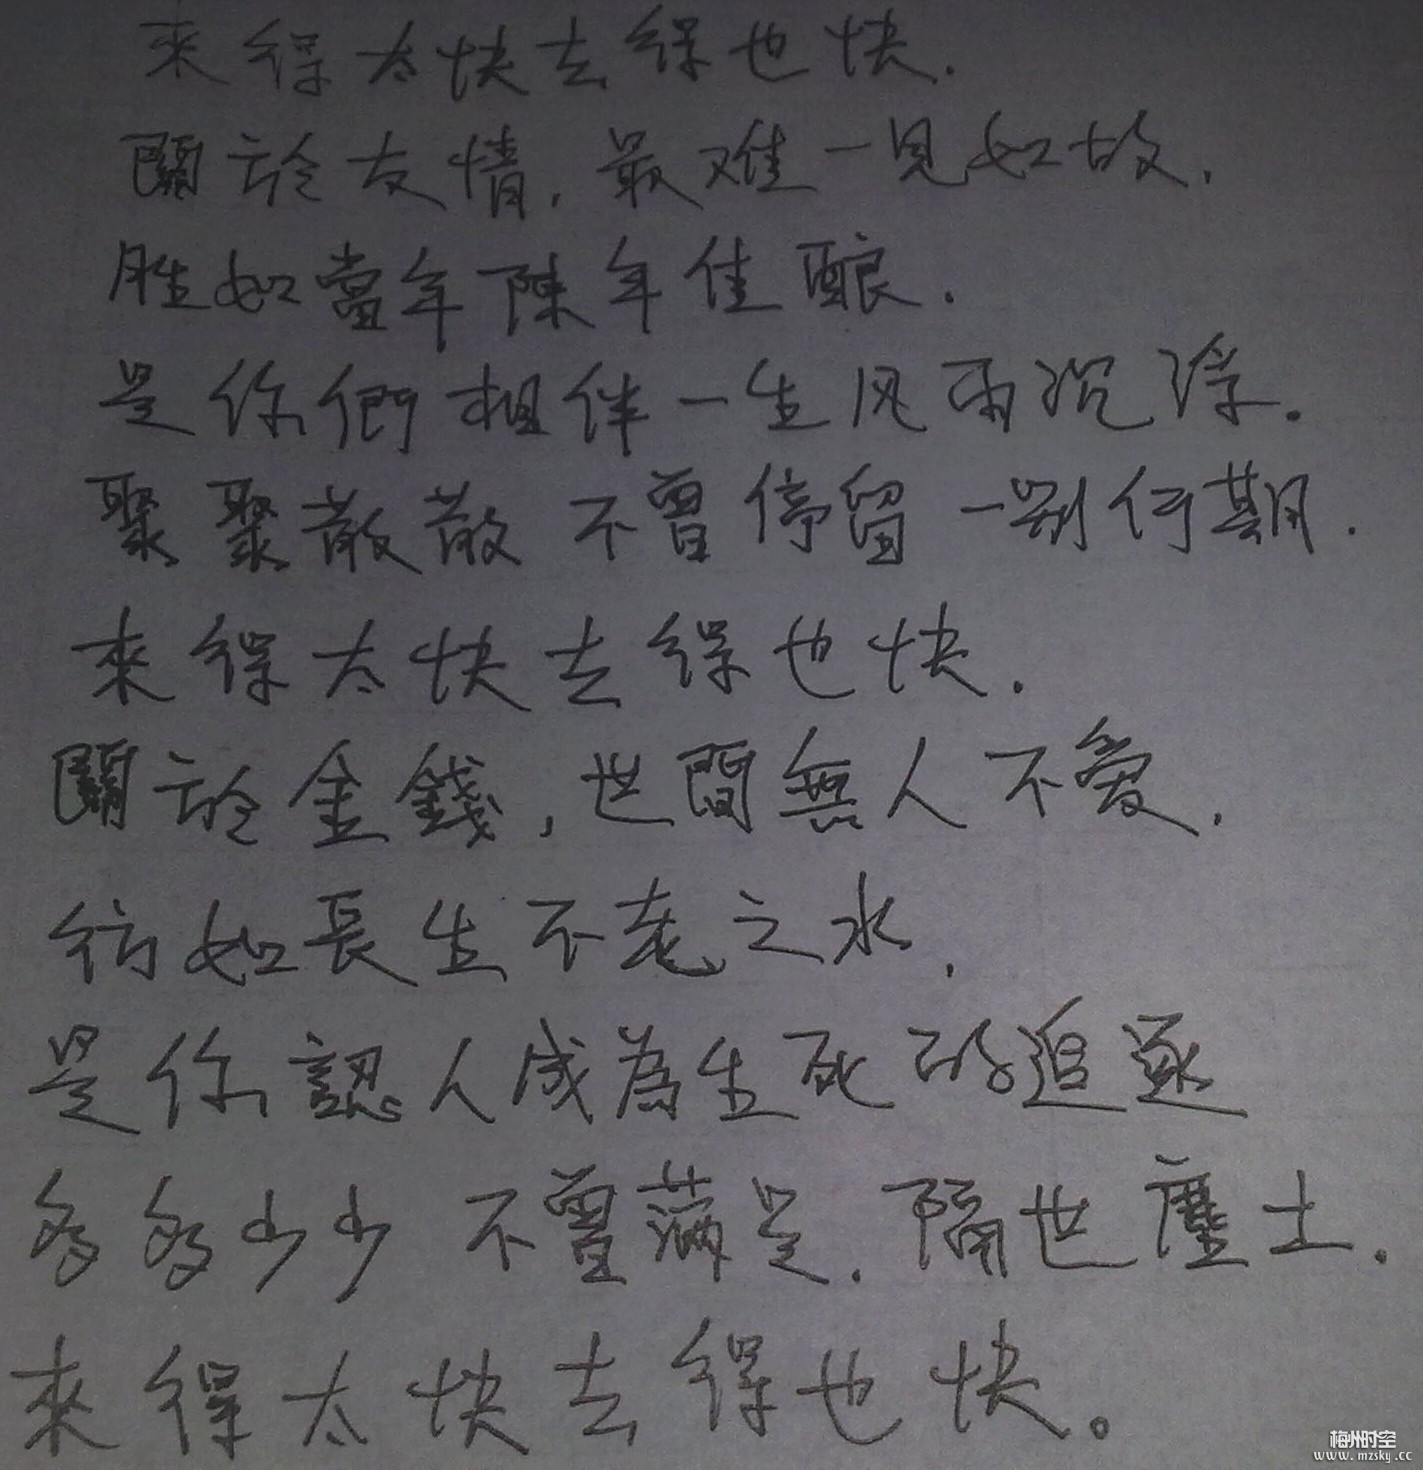 來得太快去得也快.
關於友情,最难一見如故.
胜如當年陳年佳酿.
是你們相伴一生风雨沉浮.
聚聚散散不曾停留一别何期.
來得太快去得也快.
關於金錢,世間無人不爱.
仿如長生不老之水,
是你認人成為生死的追逐
多多少少不曾满足.隔世塵土.
來得太快去得也快。
梅州时空
www.mzsky.cc